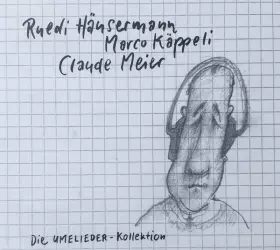 Ruedi Häusermann
Marco Käppeli
Claude Meier
Die UMELIEDER-Kollektion